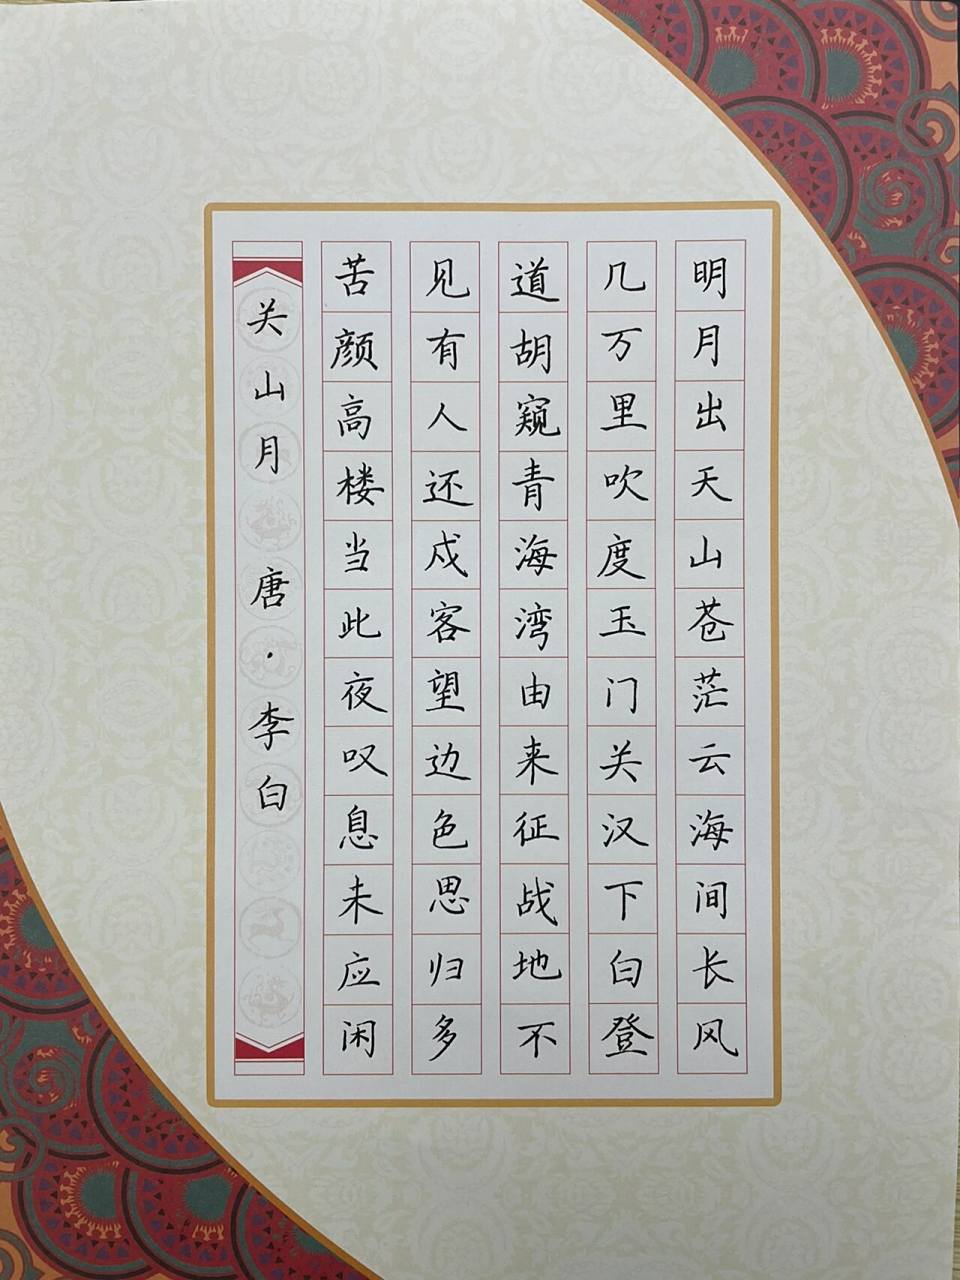 明月出天山苍茫云海间长风
几万里吹度玉门关汉下白登
道胡窥青海湾由来征战地不
见有人还戍客望边色思归多
苦颜高楼当此夜叹息未应闲
关山月 唐·李白